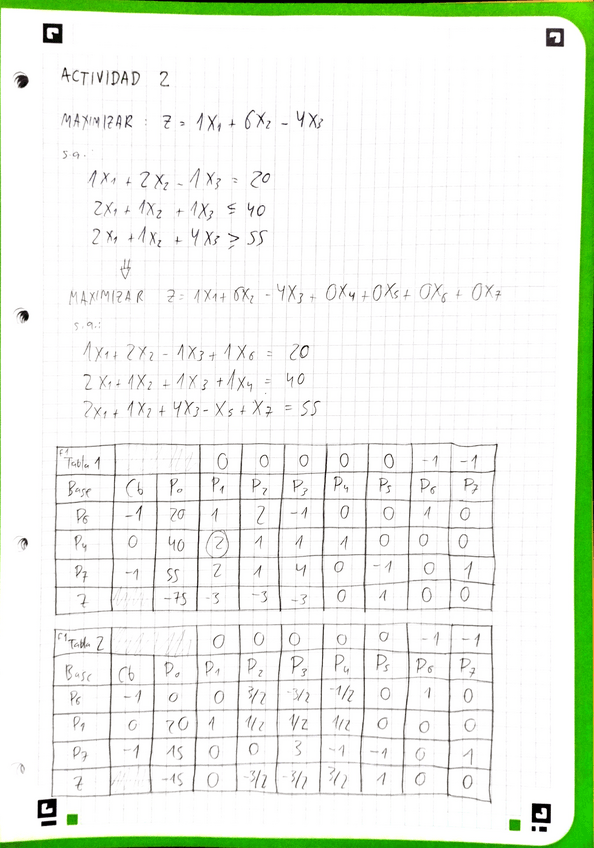 ACTIVIDAD 2
MAXIMIZAR: Z = 1X1 + 6X2 - 4X3
s.a.:
1X1 + 2X2 - 1X3 = 20
2X1 + 1X2 + 1X3 ≤ 40
2X1 + 1X2 + 4X3 ≥ 55
⇓
MAXIMIZAR Z = 1X1 + 6X2 - 4X3 + 0X4 + 0X5 + 0X6 + 0X7
s.a.:
1X1 + 2X2 - 1X3 + 1X6 = 20
2X1 + 1X2 + 1X3 + 1X4 = 40
2X1 + 1X2 + 4X3 - X5 + X7 = 55
F1 Tabla 1 0 0 0 0 0 -1 -1
Base Cb P0 P1 P2 P3 P4 P5 P6 P7
P6 -1 20 1 2 -1 0 0 1 0
P4 0 40 2 1 1 1 0 0 0
P7 -1 55 2 1 4 0 -1 0 1
Z -75 -3 -3 -3 0 1 0 0
F1 Tabla 2 0 0 0 0 0 -1 -1
Base Cb P0 P1 P2 P3 P4 P5 P6 P7
P6 -1 0 0 3/2 -3/2 -1/2 0 1 0
P1 0 20 1 1/2 1/2 1/2 0 0 0
P7 -1 15 0 0 3 -1 -1 0 1
Z -15 0 -3/2 -3/2 3/2 1 0 0